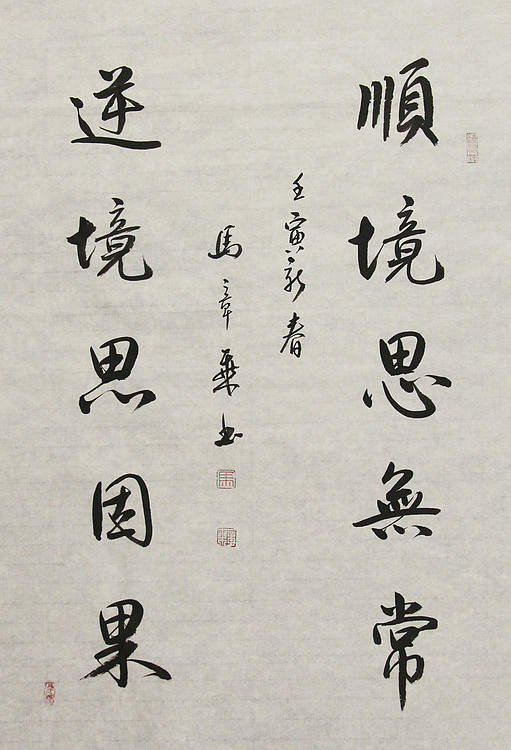 順境思無常
逆境思因果
壬寅新春
馬章乘書